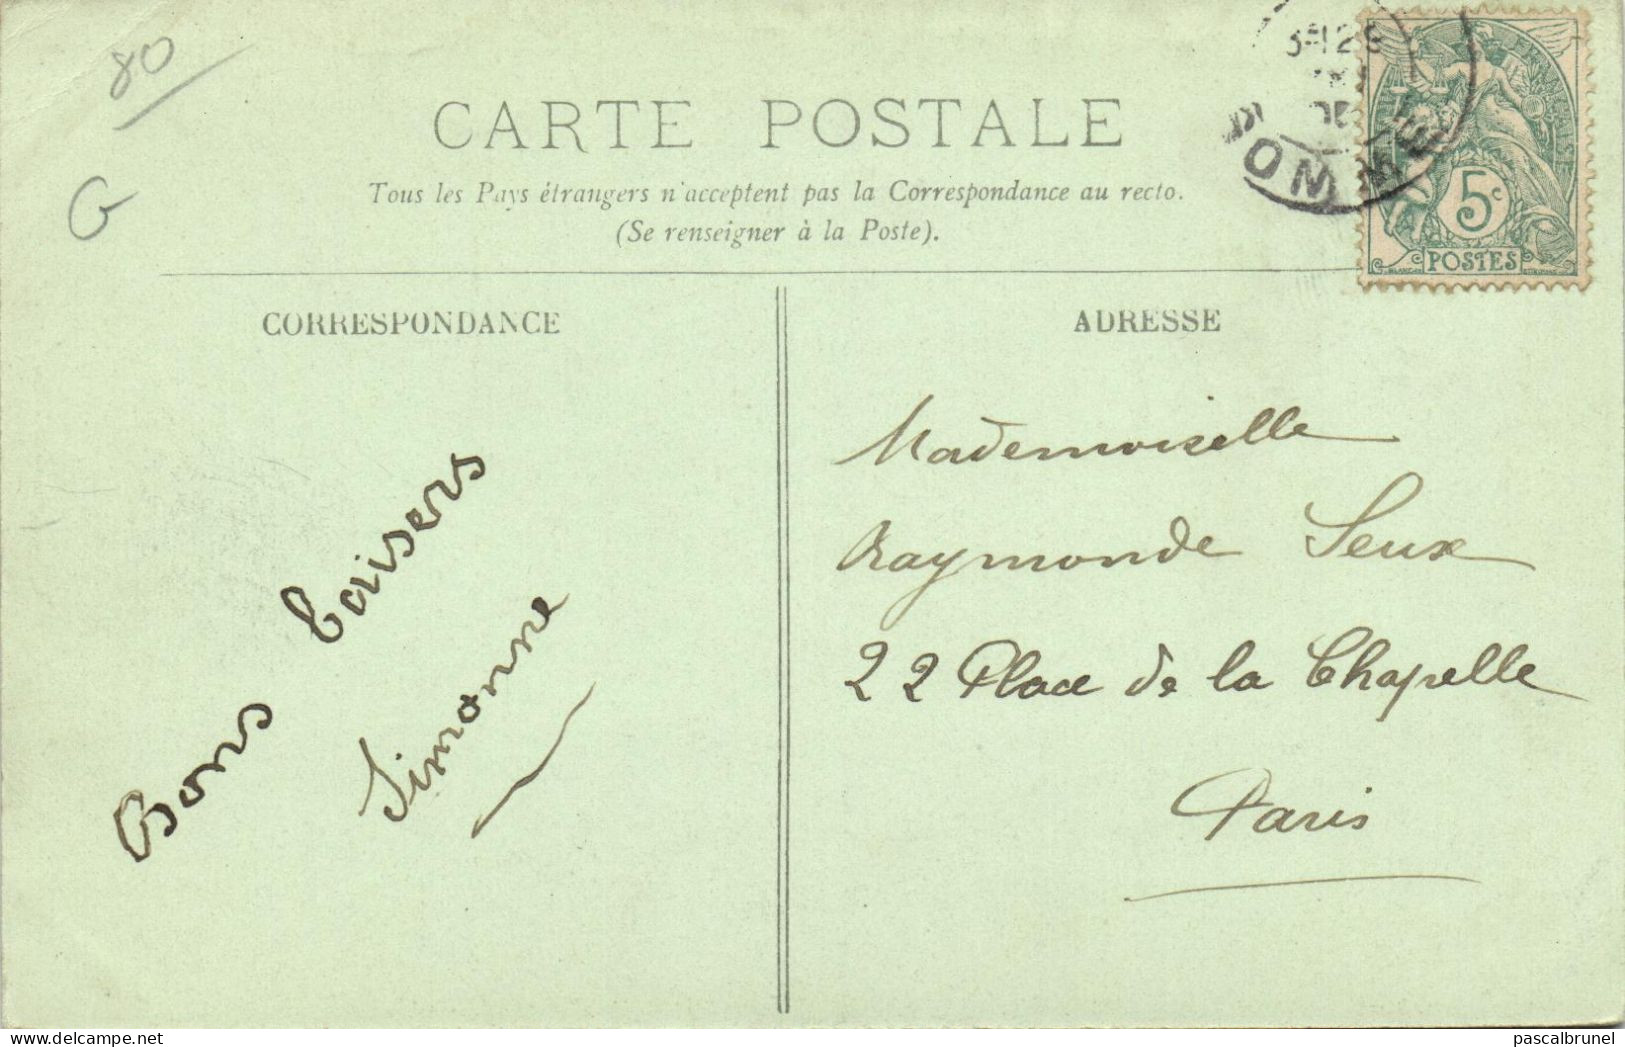 80
G
CARTE POSTALE
Tous les Pays étrangers n'acceptent pas la Correspondance au recto.
(Se renseigner à la Poste).
OMME
5c
POSTES
CORRESPONDANCE
ADRESSE
Bons baisers
Simonne
Mademoiselle
Raymonde Seux
22 Place de la Chapelle
Paris
pascalbrunel